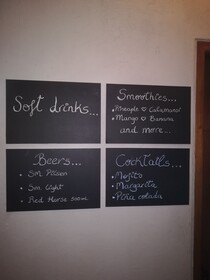 Soft drinks...
Smoothies...
• Pineaple ♡ Calamansi
• Mango ♡ Banana
and more...
Beers...
• SM Pilsen
• Sm Light
• Red Horse 500ml
Cocktails...
• Mojito
• Margarita
• Piña colada